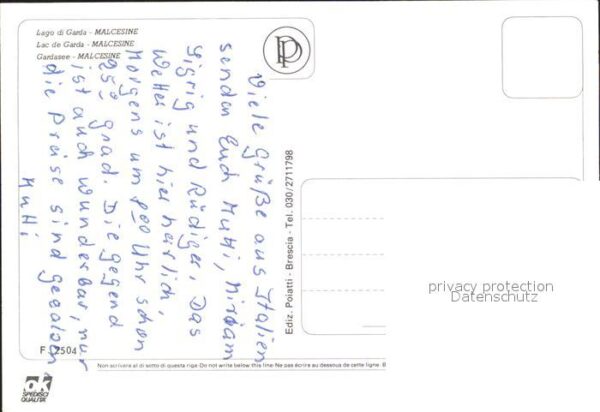 Lago di Garda - MALCESINE
Lac de Garda - MALCESINE
Gardasee - MALCESINE
Viele Grüße aus Italien
senden Euch Mutti, Miriam
Sigrig und Rüdiger. Das
Wetter ist hier herrlich,
Morgens um 8⁰⁰ Uhr schon
25° Grad. Die gegend
ist auch wunderbar, nur
die Preise sind
Mutti
Ediz. Poiatti - Brescia - Tel. 030/2711798
privacy protection
Datenschutz
F. 2504
Non scrivere al di sotto di questa riga-Do not write below this line-Ne pas écrire au dessous de cette ligne
ok
SPEDISCI
QUALITA'